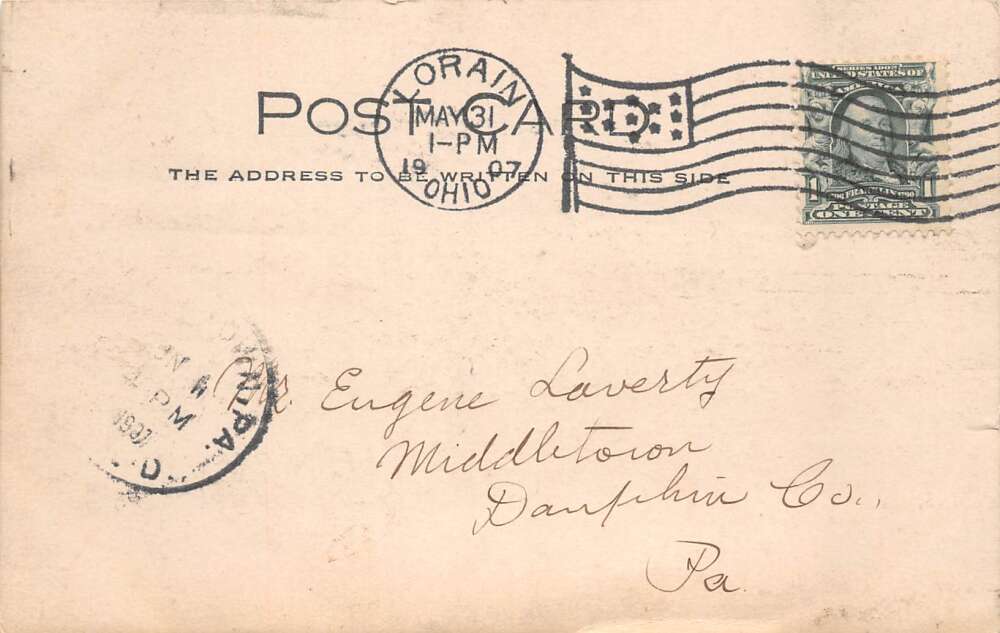 POST CARD
THE ADDRESS TO BE WRITTEN ON THIS SIDE
LORAIN
MAY 31
1-PM
19 07
OHIO
SERIES 1902
UNITED STATES OF
AMERICA
1 FRANKLIN 1
POSTAGE
ONE CENT
PA.
PM
1907
Mr. Eugene Laverty
Middletown
Dauphin Co.,
Pa.